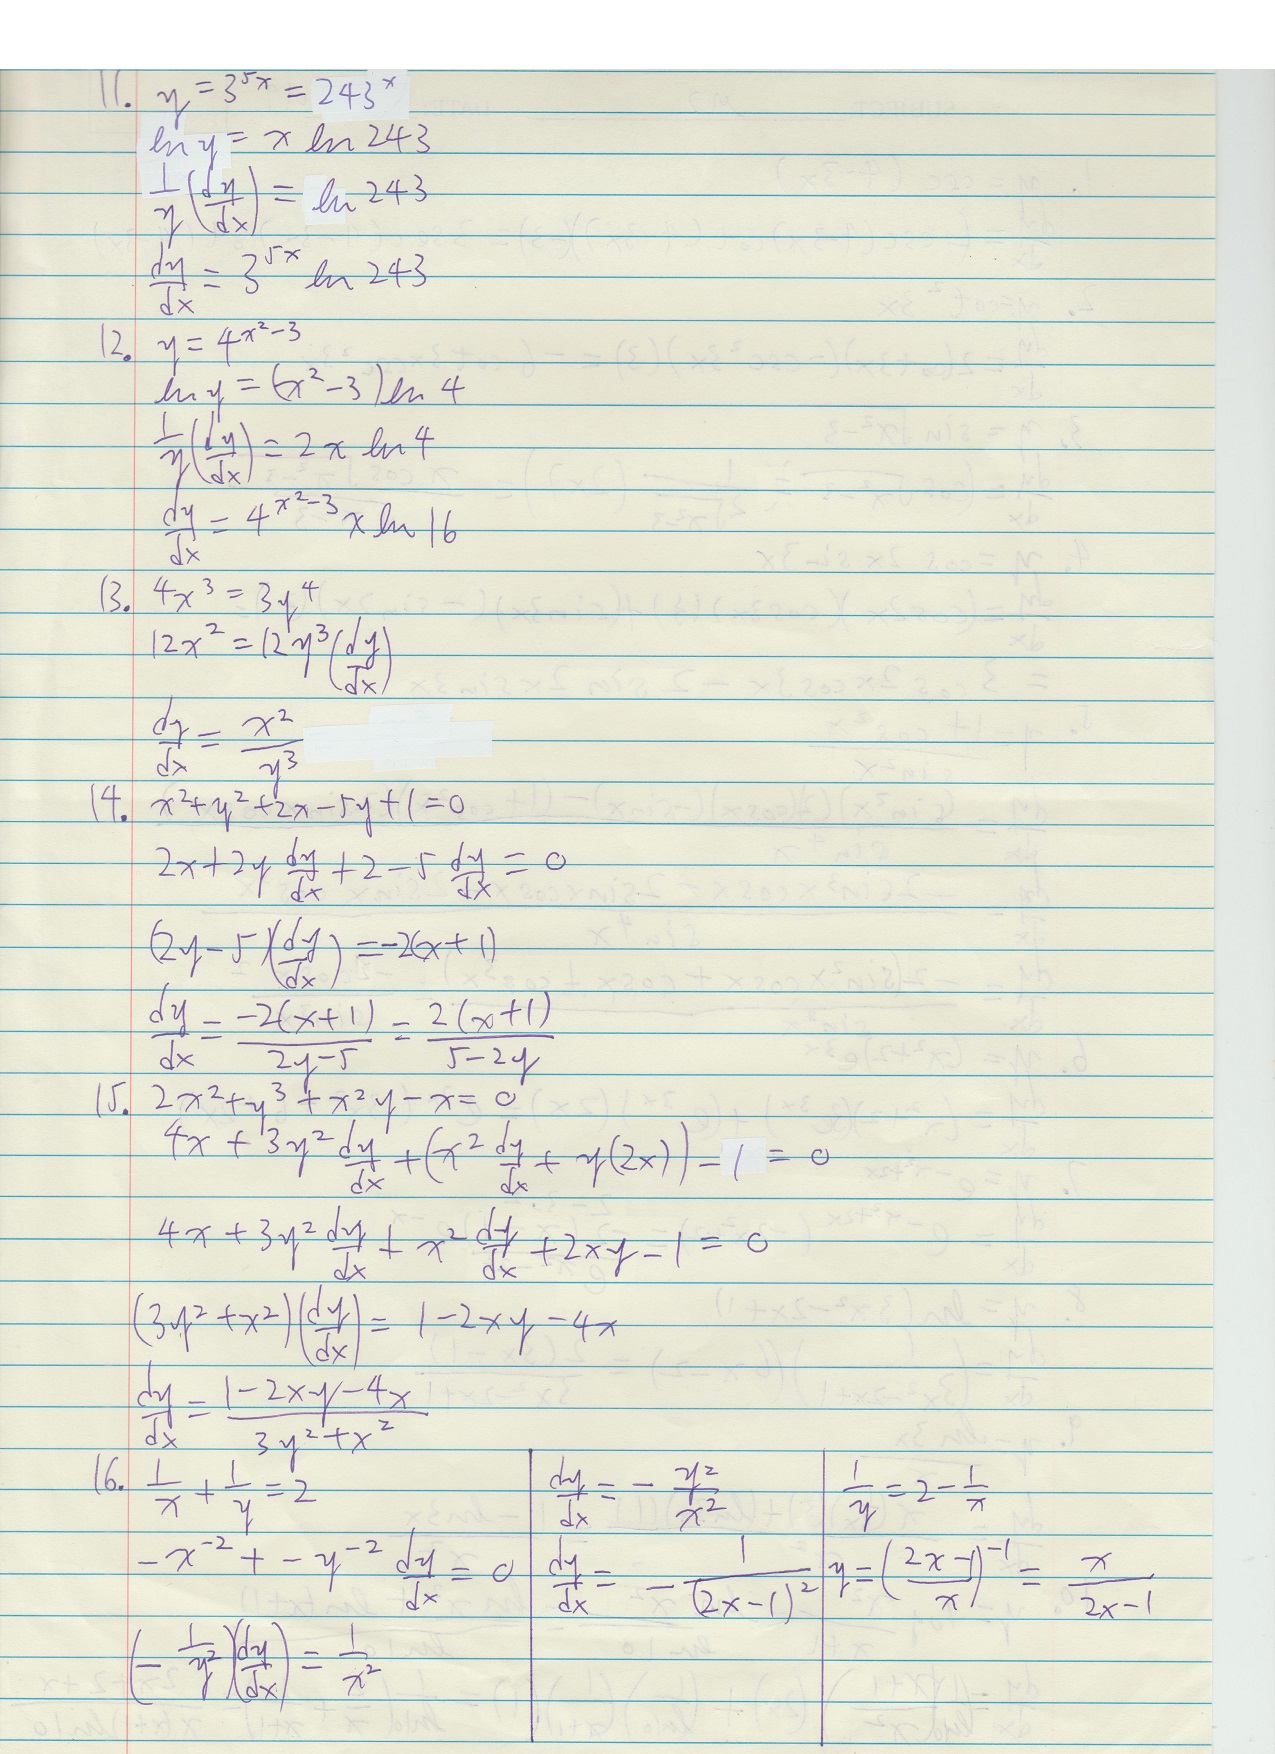 11. y = 3^{5x} = 243^x
ln y = x ln 243
1/y (dy/dx) = ln 243
dy/dx = 3^{5x} ln 243
12. y = 4^{x²-3}
ln y = (x²-3) ln 4
1/y (dy/dx) = 2x ln 4
dy/dx = 4^{x²-3} x ln 16
13. 4x³ = 3y⁴
12x² = 12y³ (dy/dx)
dy/dx = x²/y³
14. x²+y²+2x-5y+1=0
2x+2y dy/dx +2-5 dy/dx = 0
(2y-5)(dy/dx) = -2(x+1)
dy/dx = -2(x+1)/(2y-5) = 2(x+1)/(5-2y)
15. 2x²+y³+x²y-x=0
4x + 3y² dy/dx + (x² dy/dx + y(2x)) - 1 = 0
4x+3y² dy/dx + x² dy/dx +2xy-1 = 0
(3y²+x²)(dy/dx) = 1-2xy-4x
dy/dx = (1-2xy-4x)/(3y²+x²)
16. 1/x + 1/y = 2
-x^{-2} + -y^{-2} dy/dx = 0
(-1/y²)(dy/dx) = 1/x²
dy/dx = -y²/x²
dy/dx = -1/(2x-1)²
1/y = 2 - 1/x
y = ((2x-1)/x)^{-1} = x/(2x-1)